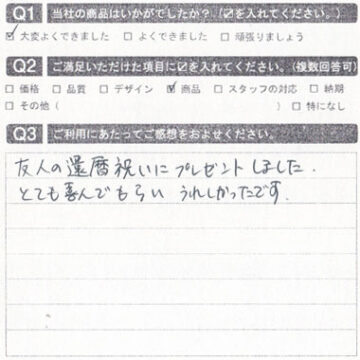 Q1 当社の商品はいかがでしたか？(☑を入れてください。)
☑ 大変よくできました □ よくできました □ 頑張りましょう
Q2 ご満足いただけた項目に☑を入れてください。(複数回答可)
□ 価格 □ 品質 □ デザイン ☑ 商品 □ スタッフの対応 □ 納期
□ その他 ( ) □ 特になし
Q3 ご利用にあたってご感想をおよせください。
友人の還暦祝いにプレゼントしました.
とても喜んでもらい うれしかったです.